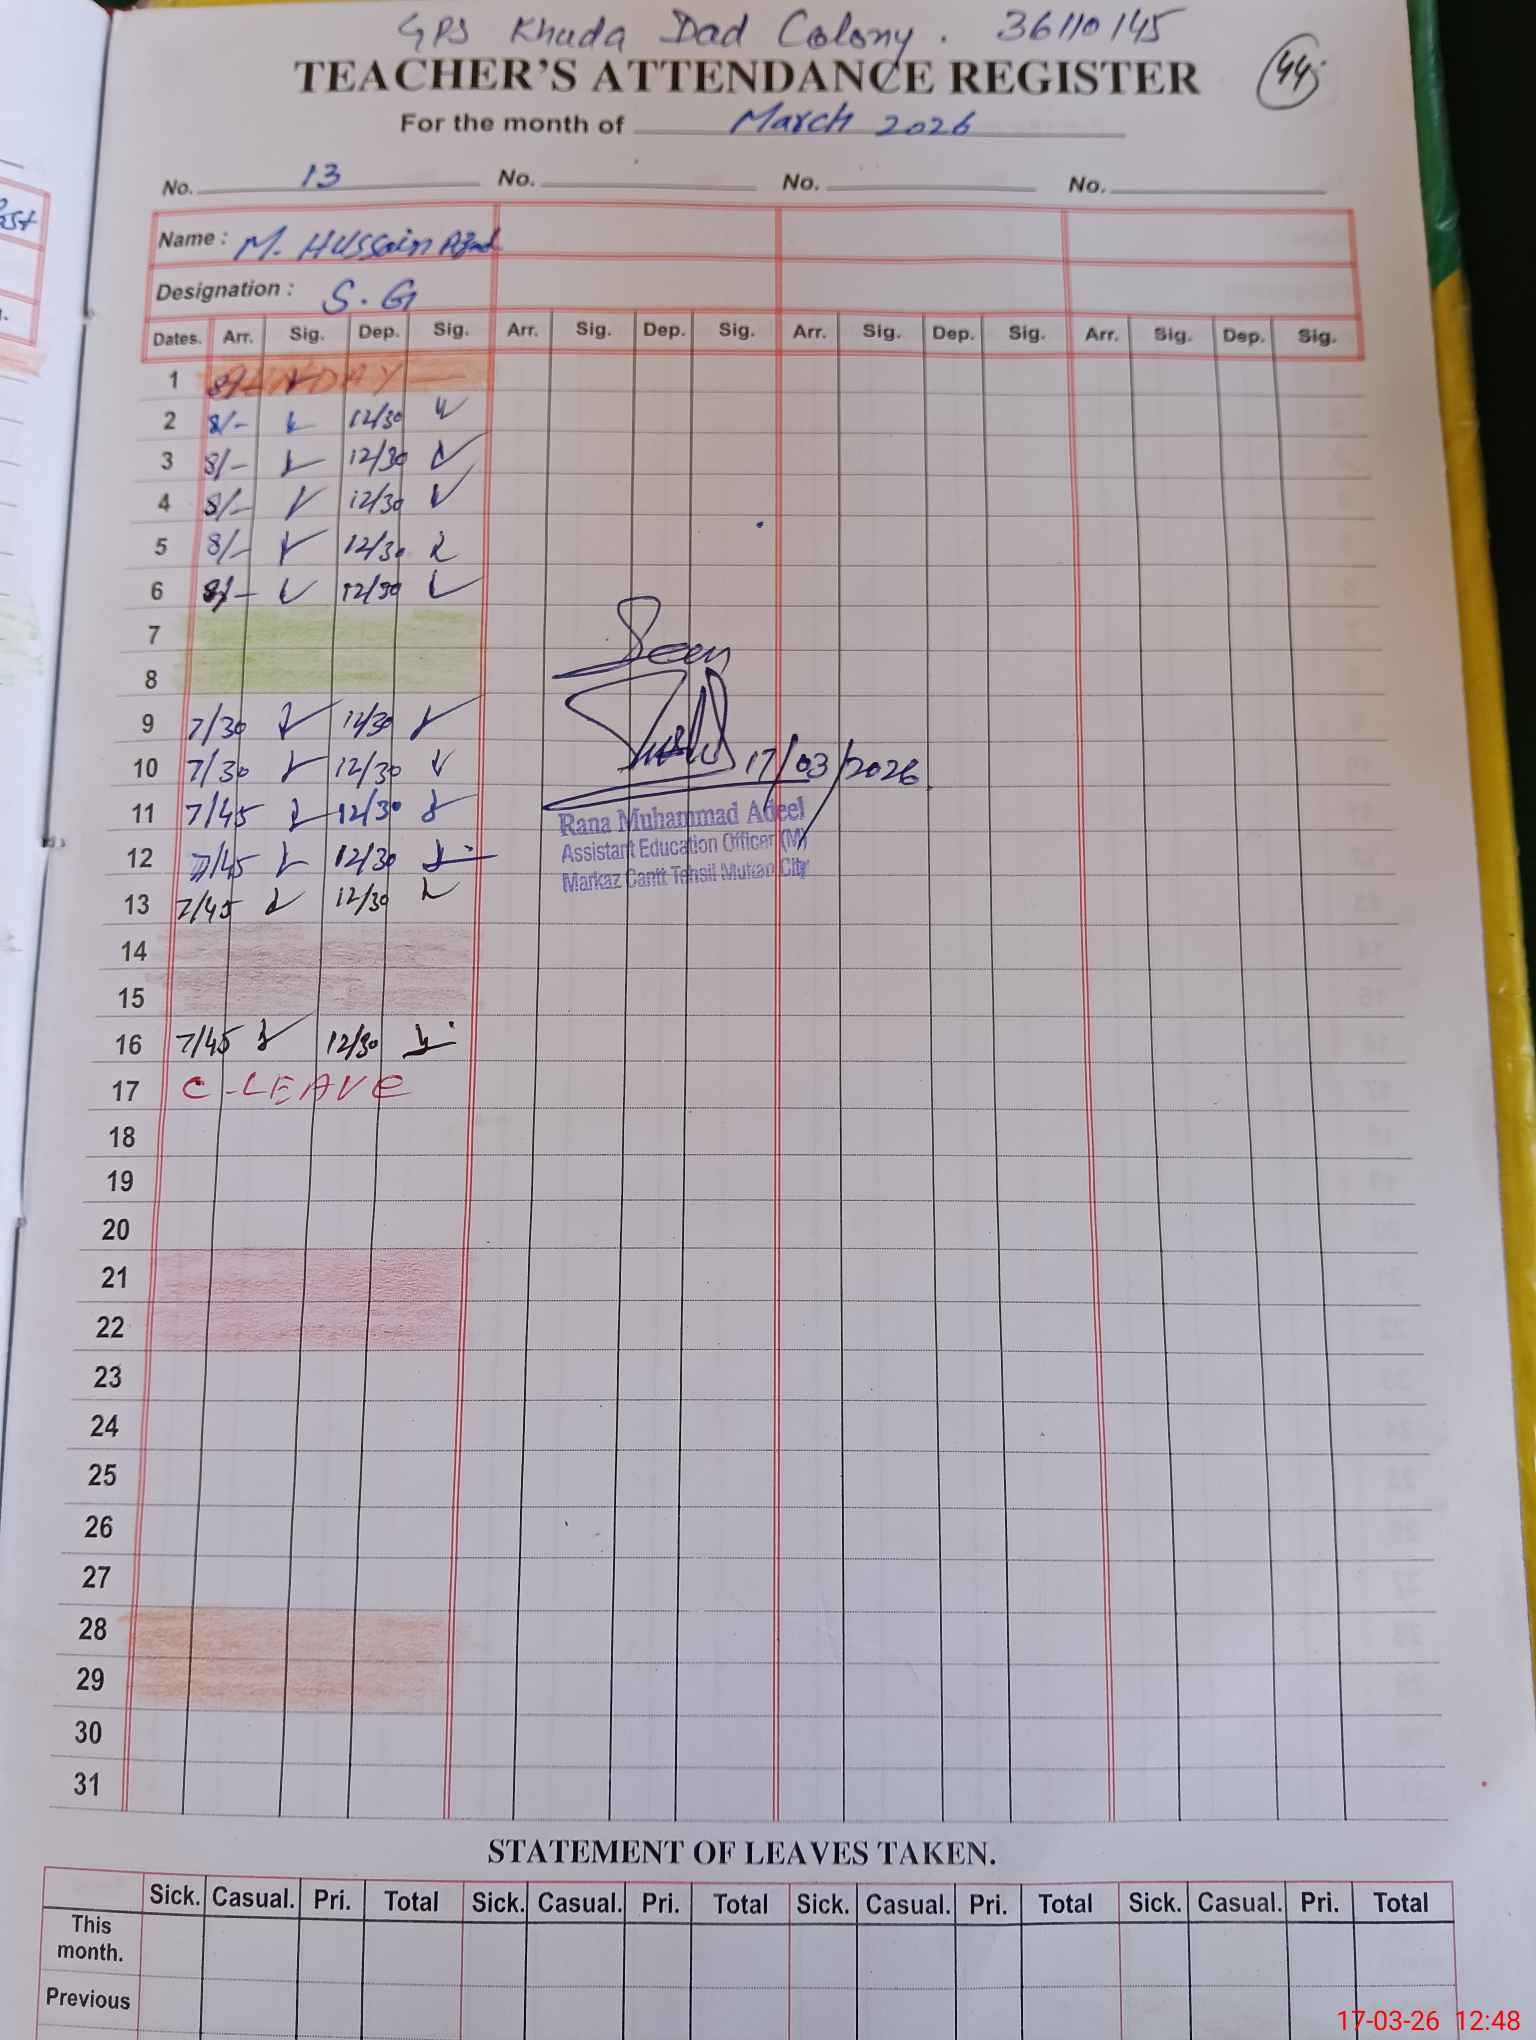 GPS Khuda Dad Colony. 36110145
TEACHER'S ATTENDANCE REGISTER 44
For the month of March 2026
No. 13 No. No. No.
Name: M. Hussain Azad
Designation: S.G
Dates. Arr. Sig. Dep. Sig. Arr. Sig. Dep. Sig. Arr. Sig. Dep. Sig. Arr. Sig. Dep. Sig.
1 SUNDAY
2 8/- 12/30
3 8/- 12/30
4 8/- 12/30
5 8/- 12/30
6 8/- 12/30
7
8
Seen
9 7/30 12/30
10 7/30 12/30 17/03/2026
11 7/45 12/30 Rana Muhammad Adeel
12 7/45 12/30 Assistant Education Officer (M)
13 7/45 12/30 Markaz Cantt Tehsil Multan City
14
15
16 7/45 12/30
17 C-LEAVE
18
19
20
21
22
23
24
25
26
27
28
29
30
31
STATEMENT OF LEAVES TAKEN.
Sick. Casual. Pri. Total Sick. Casual. Pri. Total Sick. Casual. Pri. Total Sick. Casual. Pri. Total
This month.
Previous
17-03-26 12:48